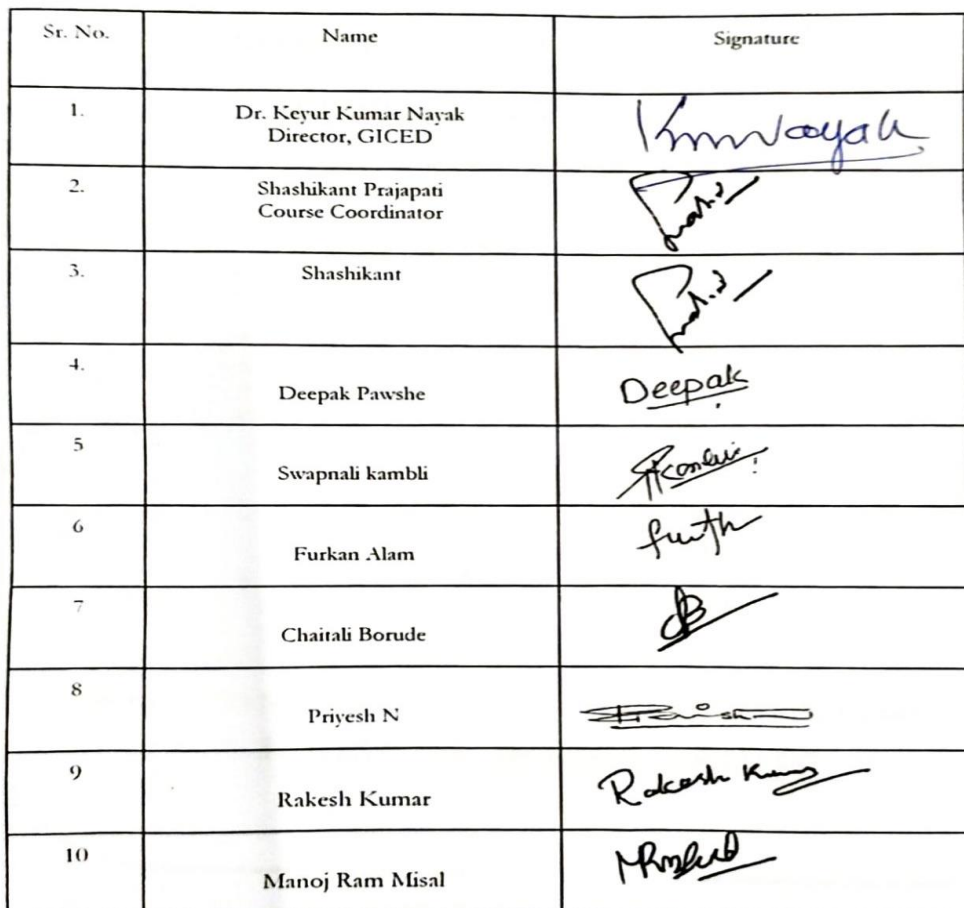 Sr. No. Name Signature
1. Dr. Keyur Kumar Nayak
Director, GICED
KmNayak
2. Shashikant Prajapati
Course Coordinator
3. Shashikant
4. Deepak Pawshe Deepak
5 Swapnali kambli
6 Furkan Alam
7 Chaitali Borude
8 Priyesh N
9 Rakesh Kumar Rakesh Kumar
10 Manoj Ram Misal